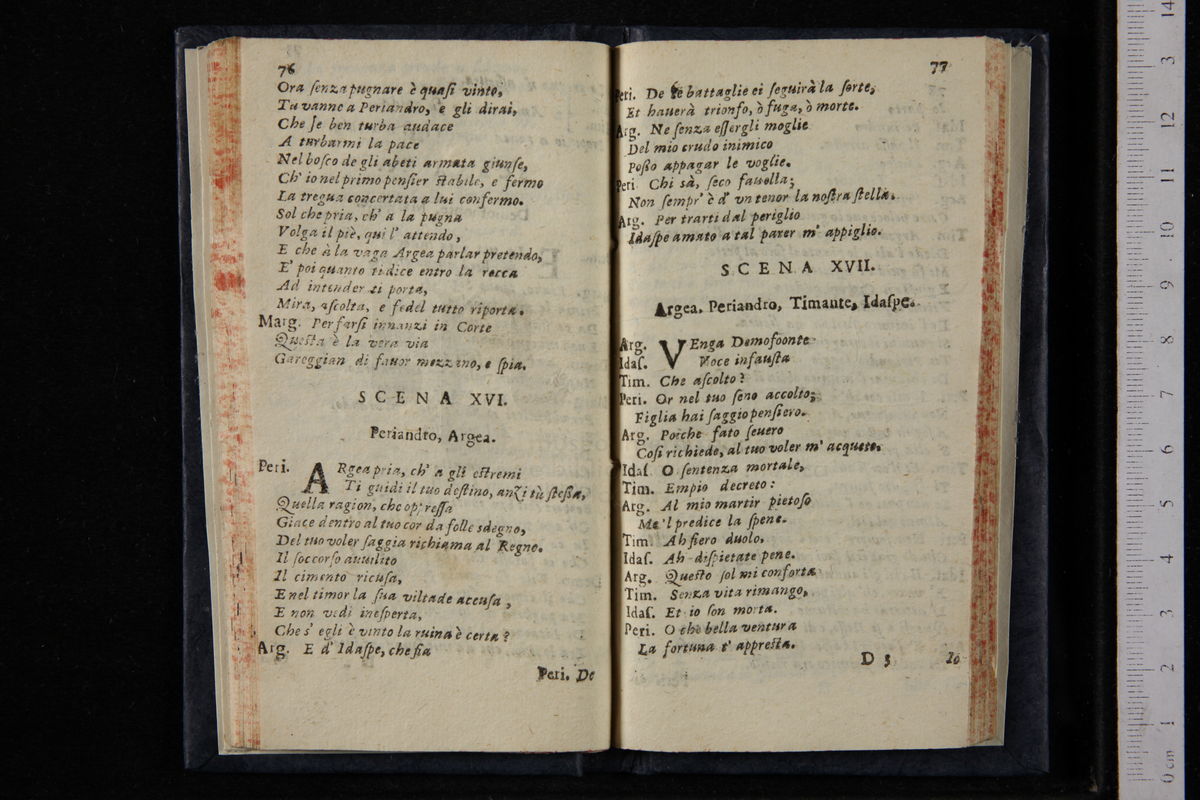 76
Ora senza pugnare è quasi vinto,
Tu vanne a Periandro, e gli dirai,
Che se ben turba audace
A turbarmi la pace
Nel bosco de gli abeti armata giunse,
Ch' io nel primo pensier stabile, e fermo
La tregua concertata a lui confermo.
Sol che pria, ch' a la pugna
Volga il piè, qui l' attendo,
E che à la vaga Argea parlar pretendo,
E' poi quanto ti dice entro la rocca
Ad intender ti porta,
Mira, ascolta, e fedel tutto riporta.
Marg. Per farsi innanzi in Corte
Questa è la vera via
Gareggian di fauor mezzano, e spia.
SCENA XVI.
Periandro, Argea.
Peri. ARgea pria, ch' a gli estremi
Ti guidi il tuo destino, anzi tù stessa,
Quella ragion, che oppressa
Giace dentro al tuo cor da folle sdegno,
Del tuo voler saggia richiama al Regno.
Il soccorso auuilito
Il cimento ricusa,
E nel timor la sua viltade accusa,
E non vedi inesperta,
Che s' egli è vinto la ruina è certa?
Arg. E d' Idaspe, che sia
Peri. De
77
Peri. De le battaglie ei seguirà la sorte,
Et hauerà trionfo, ò fuga, ò morte.
Arg. Ne senza essergli moglie
Del mio crudo inimico
Posso appagar le voglie.
Peri Chi sà, seco fauella;
Non sempr' è d' vn tenor la nostra stella.
Arg. Per trarti dal periglio
Idaspe amato a tal parer m' appiglio.
SCENA XVII.
Argea, Periandro, Timante, Idaspe.
Arg. VEnga Demofoonte
Idas. Voce infausta
Tim. Che ascolto?
Peri. Or nel tuo seno accolto;
Figlia hai saggio pensiero.
Arg. Poiche fato seuero
Cosi richiede, al tuo voler m' acqueto.
Idas. O sentenza mortale,
Tim. Empio decreto:
Arg. Al mio martir pietoso
Me 'l predice la spene.
Tim. Ah fiero duolo.
Idas. Ah dispietate pene.
Arg. Questo sol mi conforta
Tim. Senza vita rimango,
Idas. Et io son morta.
Peri. O che bella ventura
La fortuna t' appresta.
D 3 Io
0 cm 1 2 3 4 5 6 7 8 9 10 11 12 13 14